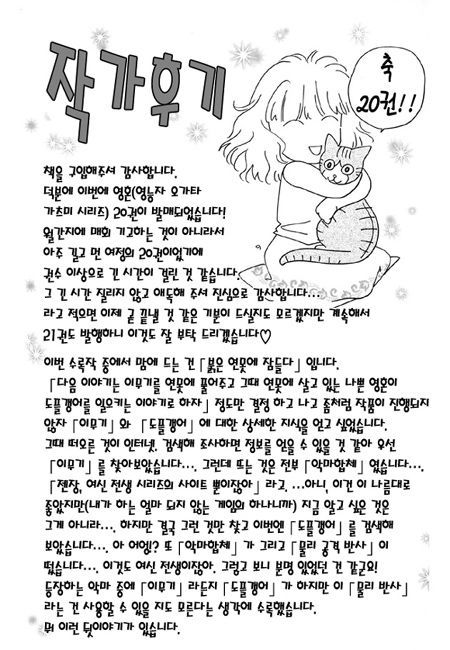 작가후기
축
20권!!
책을 구입해주셔 감사합니다.
덕분에 이번에 영혼(영능자 오가타
가츠미 시리즈) 20권이 발매되었습니다!
월간지에 매회 기고하는 것이 아니라서
아주 길고 먼 여정의 20권이었기에
권수 이상으로 긴 시간이 걸린 것 같습니다.
그 긴 시간 질리지 않고 애독해 주셔 진심으로 감사합니다...
라고 적으면 이제 곧 끝낼 것 같은 기분이 드실지도 모르겠지만 계속해서
21권도 발행하니 이것도 잘 부탁 드리겠습니다♡
이번 수록작 중에서 맘에 드는 건 「붉은 연못에 잠들다」 입니다.
「다음 이야기는 이무기를 연못에 풀어주고 그때 연못에 살고 있는 나쁜 영혼이
도플갱어를 일으키는 이야기로 하자」 정도만 결정 하고 나고 좀처럼 작품이 진행되지
않자 「이무기」 와 「도플갱어」 에 대한 상세한 지식을 얻고 싶었습니다.
그때 떠오른 것이 인터넷. 검색해 조사하면 정보를 얻을 수 있을 것 같아 우선
「이무기」 를 찾아보았습니다.... 그런데 뜨는 것은 전부 「악마합체」 였습니다....
「젠장, 여신 전생 시리즈의 사이트 뿐이잖아」 라고. ...아니, 이건 이 나름대로
좋았지만(내가 하는 얼마 되지 않는 게임의 하나니까) 지금 알고 싶은 것은
그게 아니라... 하지만 결국 그런 것만 찾고 이번엔 「도플갱어」 를 검색해
보았습니다.... 아 어엉? 또 「악마합체」 가 그리고 「물리 공격 반사」 이
떴습니다.... 이것도 여신 전생이잖아. 그렇고 보니 분명 있었던 건 같군요!
등장하는 악마 중에 「이무기」 라든지 「도플갱어」 가 하지만 이 「물리 반사」
라는 건 사용할 수 있을 지도 모른다는 생각에 수록했습니다.
뭐 이런 뒷이야기가 있습니다.